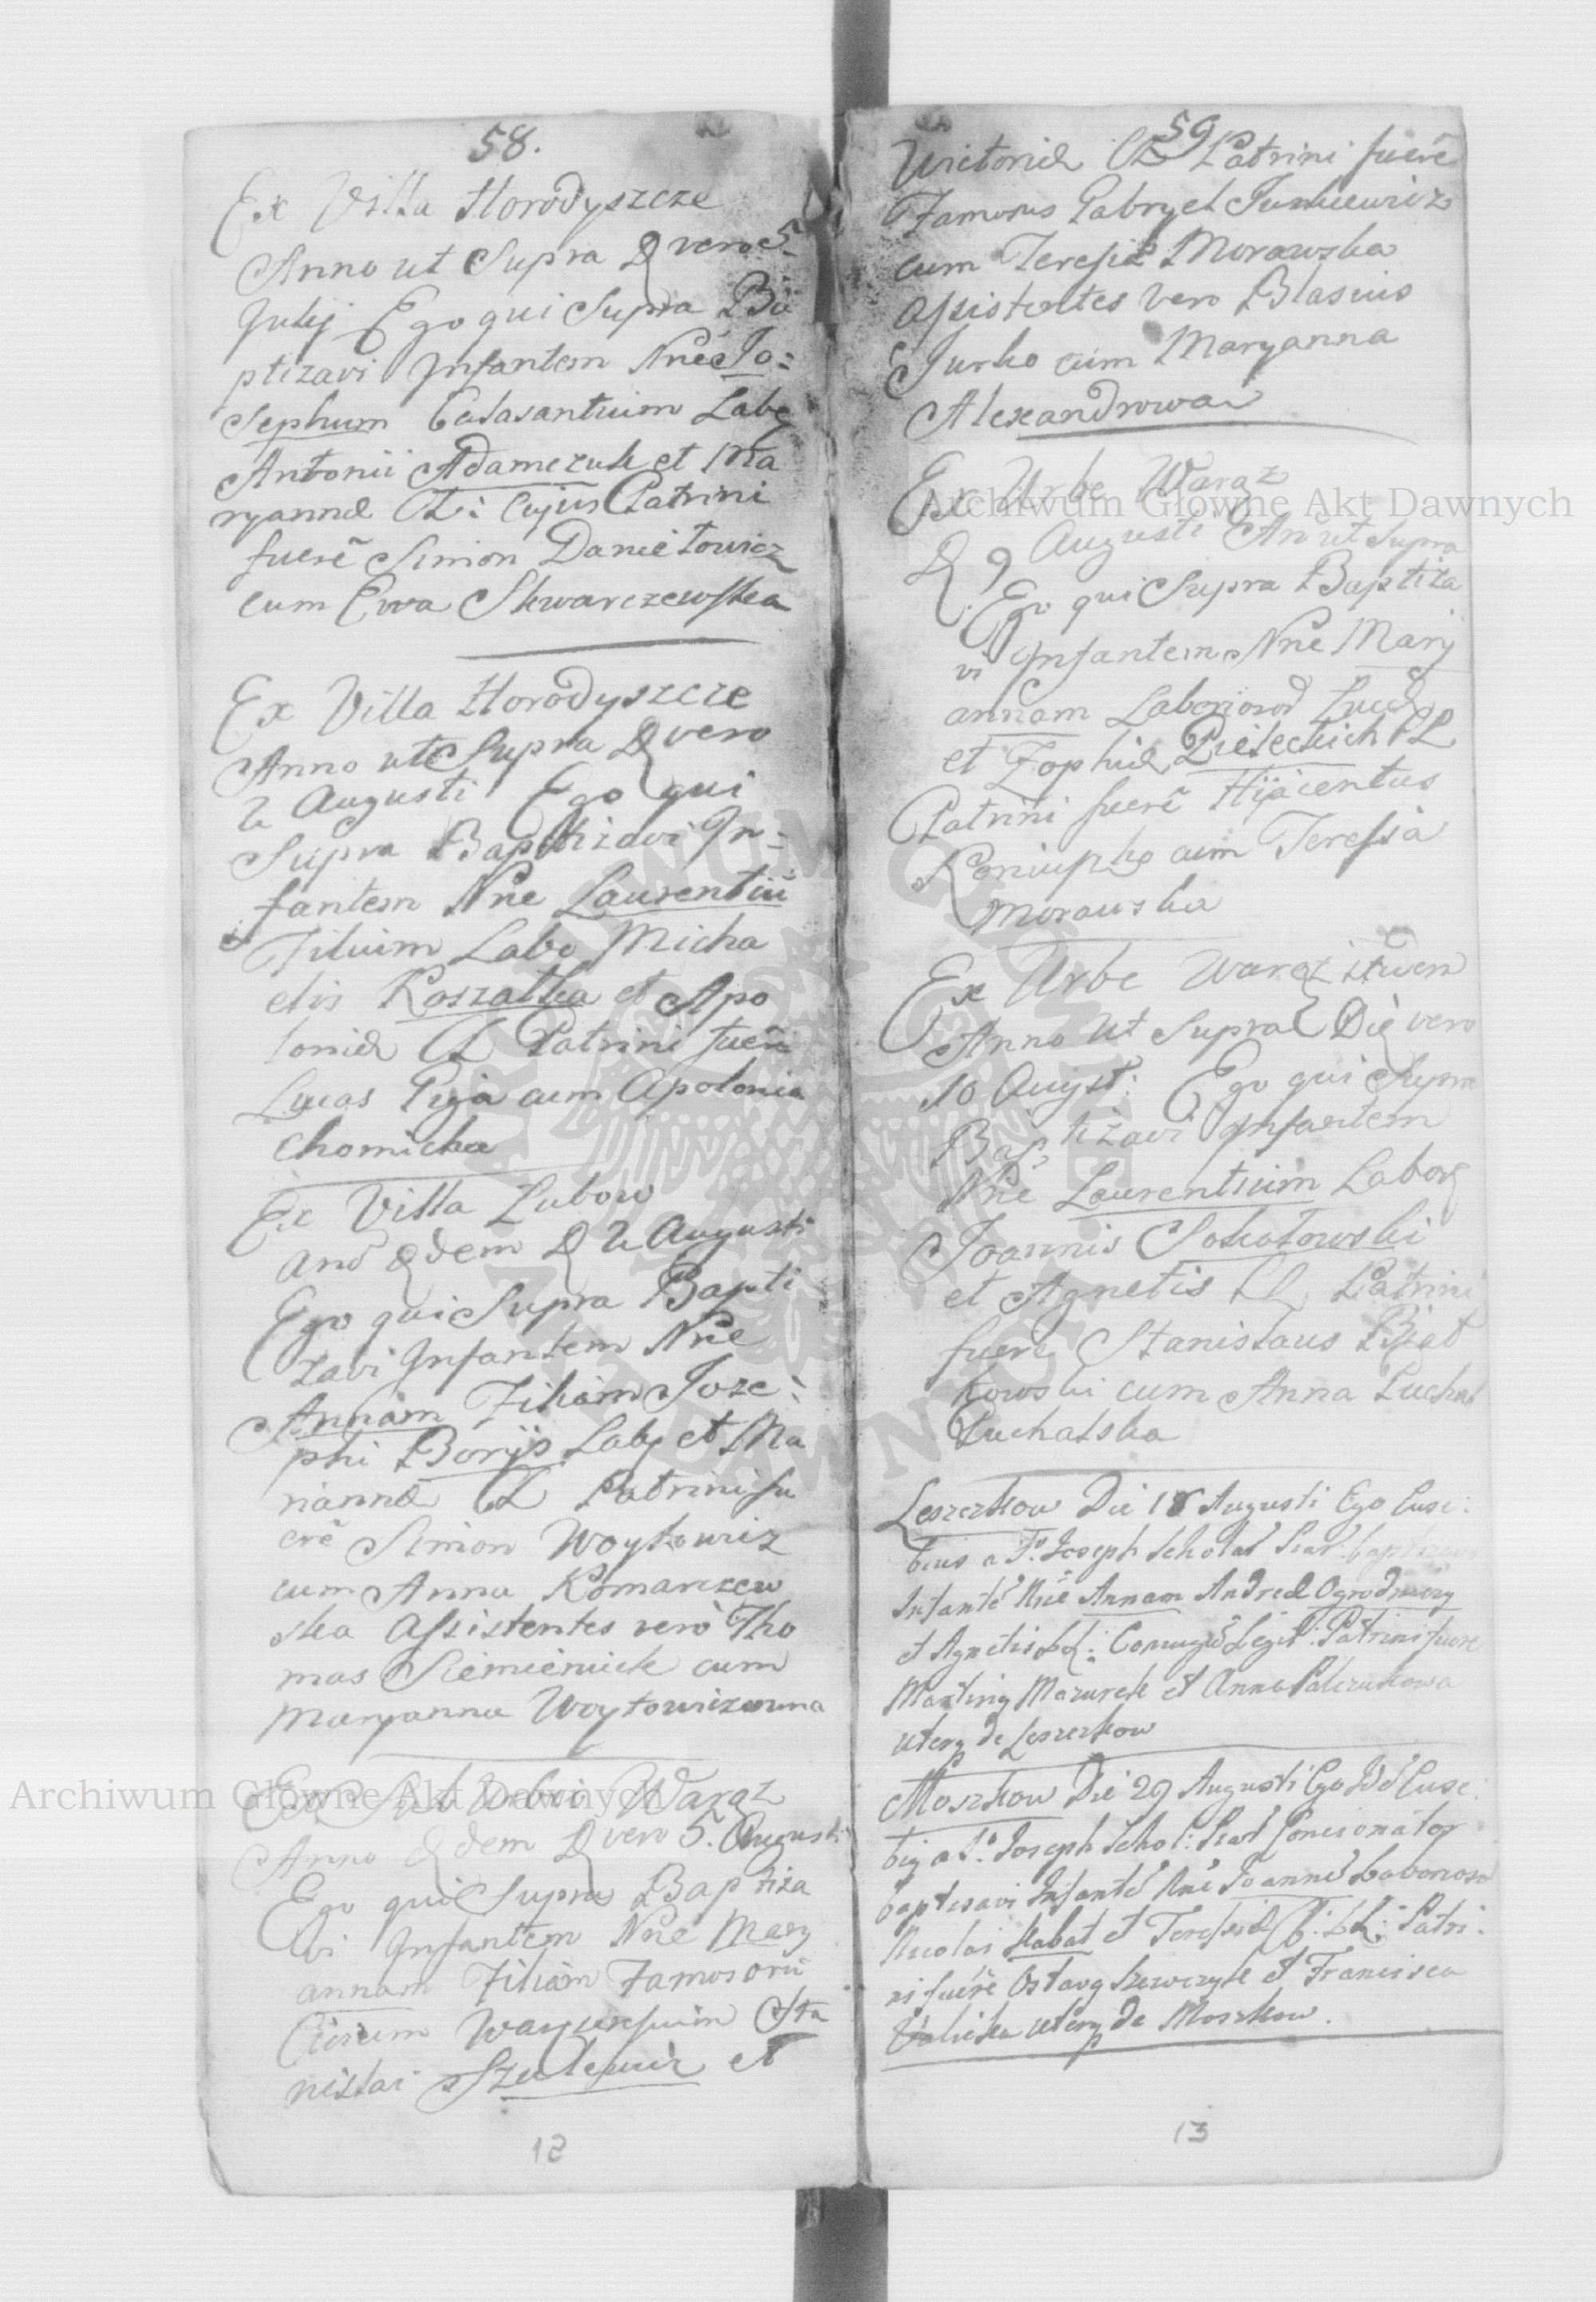 58.
Ex Villa Horodyszcze
Anno ut Supra D vero 5
Julij Ego qui Supra Ba
ptizavi Infantem Nne Jo=
sephum Calasantium Labo
Antonii Adamczuk et Ma
ryannæ CL: Cujus Patrini
fuerẽ Simon Daniełowicz
cum Ewa Skwarczewska
Ex Villa Horodyszcze
Anno ut Supra D vero
2 Augusti Ego qui
Supra Baptizavi In=
fantem Nne Laurentiũ
Filium Labo Micha
elis Koszałka et Apo
loniæ CL Patrini fuerẽ
Lucas Puja cum Apolonia
Chomicka
Ex Villa Lubow
Ano Eodem D 2 Augusti
Ego qui Supra Bapti
zavi Infantem Nne
Annam Filiam Joze:
phi Boryś Labo et Ma
riannæ CL Patrini fu
erẽ Simon Woytowicz
cum Anna Komarzew
ska Assistentes vero Tho
mas Niemieruck cum
Maryanna Woytowiczowna
Ex Sub Urbio Waręz
Anno Eodem D vero 5. Augusti
Ego qui Supra Baptiza
vi Infantem Nne Mary
annam Filiam Famosorũ
Civium Waręzensium Sta
nislai Szulewicz et
12
59
Victoriæ CL Patrini fuerẽ
Famosus Gabryel Juśkiewicz
cum Teresia Morawska
Assistentes vero Blasius
Jurko cum Maryanna
Alexandrowa
Ex Urbe Waręz
D 9 Augusti Añ ut Supra
Ego qui Supra Baptiza
vi Infantem Nne Mary
annam Laboriosor Lucæ
et Zophiæ Pieleckich CL
Patrini fuerẽ Hijacentus
Koniuszko cum Teressia
Morawska
Ex Urbe Waręz itidem
Anno Ut Supra Die vero
10 August: Ego qui Supra
Baptizavi Infantem
Nne Laurentium Labor
Joannis Sokołowski
et Agnetis CL Patrini
fuere Stanislaus Biał
kowski cum Anna Puchal
Puchalska
Leszczkow Die 18 Augusti Ego Euse:
bius a S. Joseph Scholar Piar: baptizavi
Infante Nne Annam Andreæ Ogrodniczy
et Agnetis LL: Conjugũ Legit: Patrini fuere
Martinus Mazurek et Anna Palczukowa
uterq de Leszczkow
Moszkow Die 29 Augusti Ego Id Euse:
bius a S. Joseph Schol: Piar Concionator
baptisavi Infante Nne Joanne Laborioso
Nicolai Habat et Teresiæ C. LL: Patri:
ni fuere Ostaug Szewczyk et Francisca
Valicka uterq de Moszkow.
13
Archiwum Główne Akt Dawnych
Archiwum Główne Akt Dawnych
ARCHIWUM GŁÓWNE AKT DAWNYCH